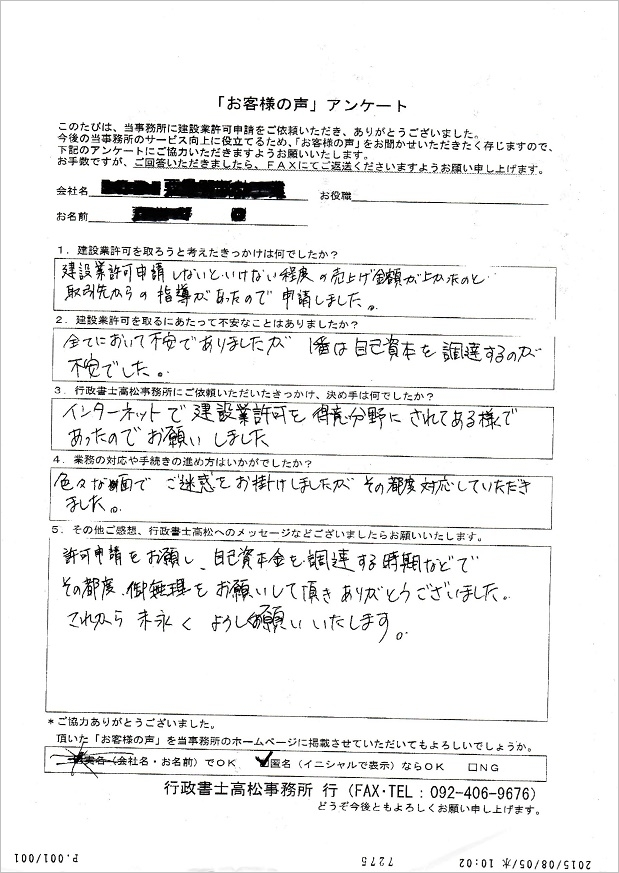 「お客様の声」アンケート
このたびは、当事務所に建設業許可申請をご依頼いただき、ありがとうございました。
今後の当事務所のサービス向上に役立てるため、「お客様の声」をお聞かせいただきたく存じますので、
下記のアンケートにご協力いただきますようお願いいたします。
お手数ですが、ご回答いただきましたら、FAXにてご返送くださいますようお願い申し上げます。
会社名 お役職
お名前
1. 建設業許可を取ろうと考えたきっかけは何でしたか?
建設業許可申請しないといけない程度の売上げ金額が上がったのと
取引先からの指導があったので申請しました。
2. 建設業許可を取るにあたって不安なことはありましたか?
全てにおいて不安でありましたが 1番は自己資本を調達するのが
不安でした。
3. 行政書士高松事務所にご依頼いただいたきっかけ、決め手は何でしたか?
インターネットで建設業許可を得意分野にされてある様で
あったのでお願いしました
4. 業務の対応や手続きの進め方はいかがでしたか?
色々な面でご迷惑をお掛けしましたがその都度対応していただき
ました。
5. その他ご感想、行政書士高松へのメッセージなどございましたらお願いいたします。
許可申請をお願し、自己資本金を調達する時期などで
その都度、御無理をお願いして頂きありがとうございました。
これから末永くよろしくお願いいたします。
*ご協力ありがとうございました。
頂いた「お客様の声」を当事務所のホームページに掲載させていただいてもよろしいでしょうか。
実名(会社名・お名前)でOK ☑匿名(イニシャルで表示)ならOK □NG
行政書士高松事務所 行(FAX・TEL:092-406-9676)
どうぞ今後ともよろしくお願い申し上げます。
2015/08/05/水 10:02 7275 P.001/001